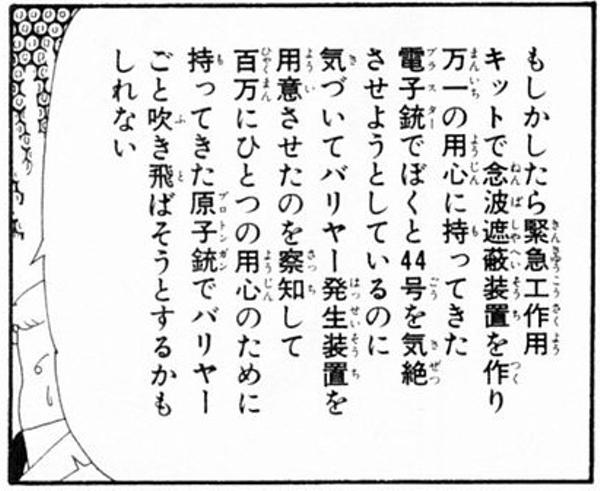 もしかしたら緊急工作用
キットで念波遮蔽装置を作り
万一の用心に持ってきた
電子銃でぼくと44号を気絶
させようとしているのに
気づいてバリヤー発生装置を
用意させたのを察知して
百万にひとつの用心のために
持ってきた原子銃でバリヤー
ごと吹き飛ばそうとするかも
しれない